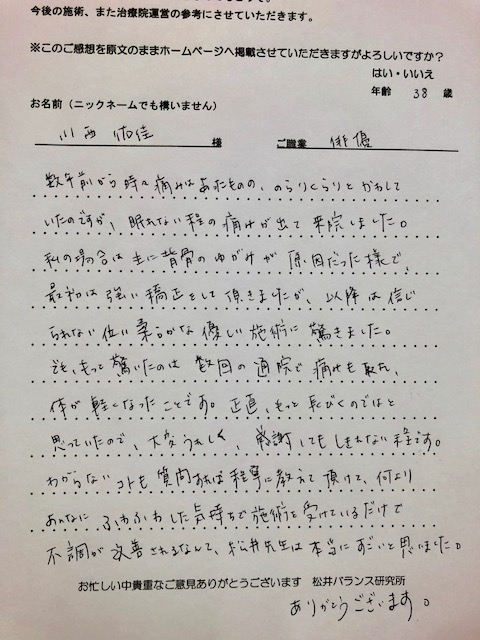 今後の施術、また治療院運営の参考にさせていただきます。
※このご感想を原文のままホームページへ掲載させていただきますがよろしいですか？
はい・いいえ
年齢 38 歳
お名前（ニックネームでも構いません）
川西 佑佳 様 ご職業 俳優
数年前から時々痛みはあったものの、のらりくらりとかわして
いたのですが、眠れない程の痛みが出て来院しました。
私の場合は主に背骨のゆがみが原因だった様で、
最初は強い矯正をして頂きましたが、以降は信じ
られない位に柔らかな優しい施術に驚きました。
でも、もっと驚いたのは数回の通院で痛みも取れ、
体が軽くなったことです。正直、もっと長びくのではと
思っていたので、大変うれしく、感謝してもしきれない程です。
わからないコトも質問すれば丁寧に教えて頂けて、何より
あんなにふわふわした気持ちで施術を受けているだけで
不調が改善されるなんて、松井先生は本当にすごいと思いました。
お忙しい中貴重なご意見ありがとうございます 松井バランス研究所
ありがとうございます。